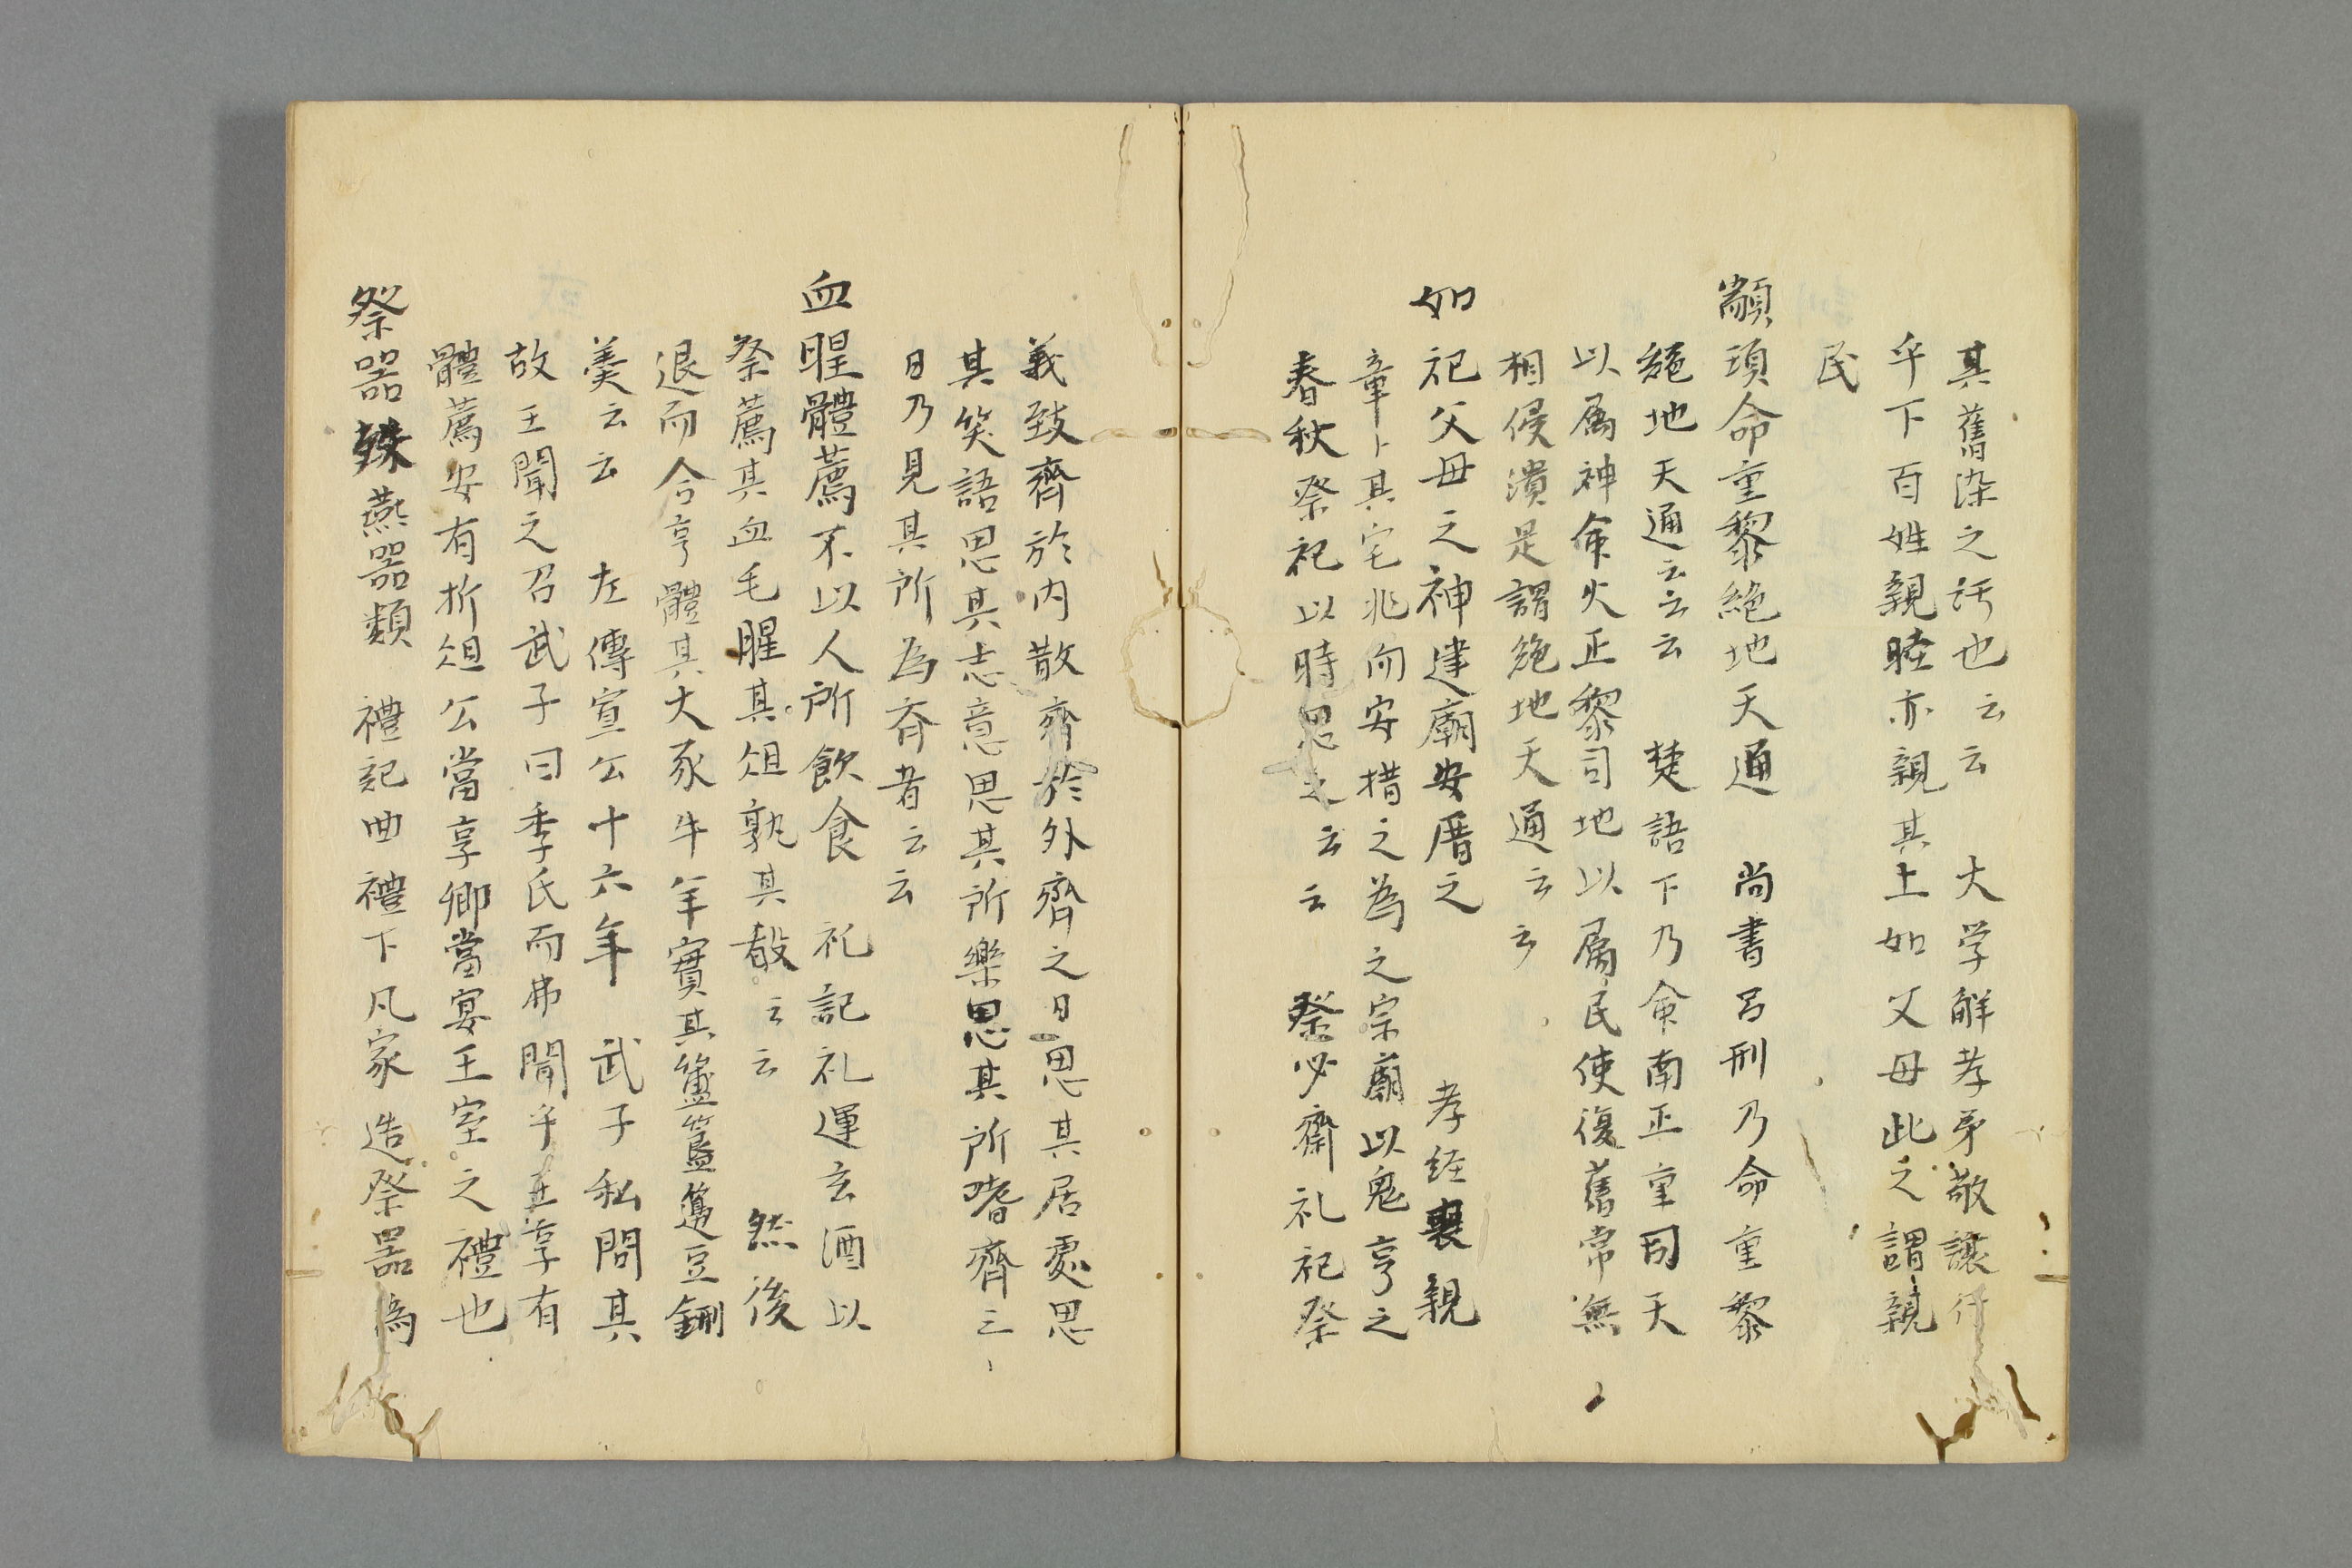 其舊染之汚也云云　大学解孝弟敬讓行
乎下百姓親睦亦親其上如父母此之謂親
民
顓頊命重黎絶地天通　尚書呂刑乃命重黎
絕地天通云云云　楚語下乃命南正重司天
以属神命火正黎司地以属民使復舊常無
相侵瀆是謂絶地天通云云
如祀父母之神建廟安厝之　孝経喪親
章卜其宅兆而安措之為之宗廟以鬼亨之
春秋祭祀以時思之云云　祭必齋礼祀祭
義致齊於内散齊於外齊之日思其居處思
其笑語思其志意思其所樂思其所嗜齊三
日乃見其所為斉者云云
血腥體薦不以人所飲食　礼記礼運玄酒以
祭薦其血毛腥其俎孰其殽云云　然後
退而合亨體其犬豕牛羊實其簠簋籩豆鉶
羹云云　左傳宣公十六年　武子私問其
故王聞之召武子曰季氏而弗聞乎王享有
體薦安有折俎公當享卿當宴王室之禮也
祭器殊燕器類　禮記曲禮下凡家造祭器為